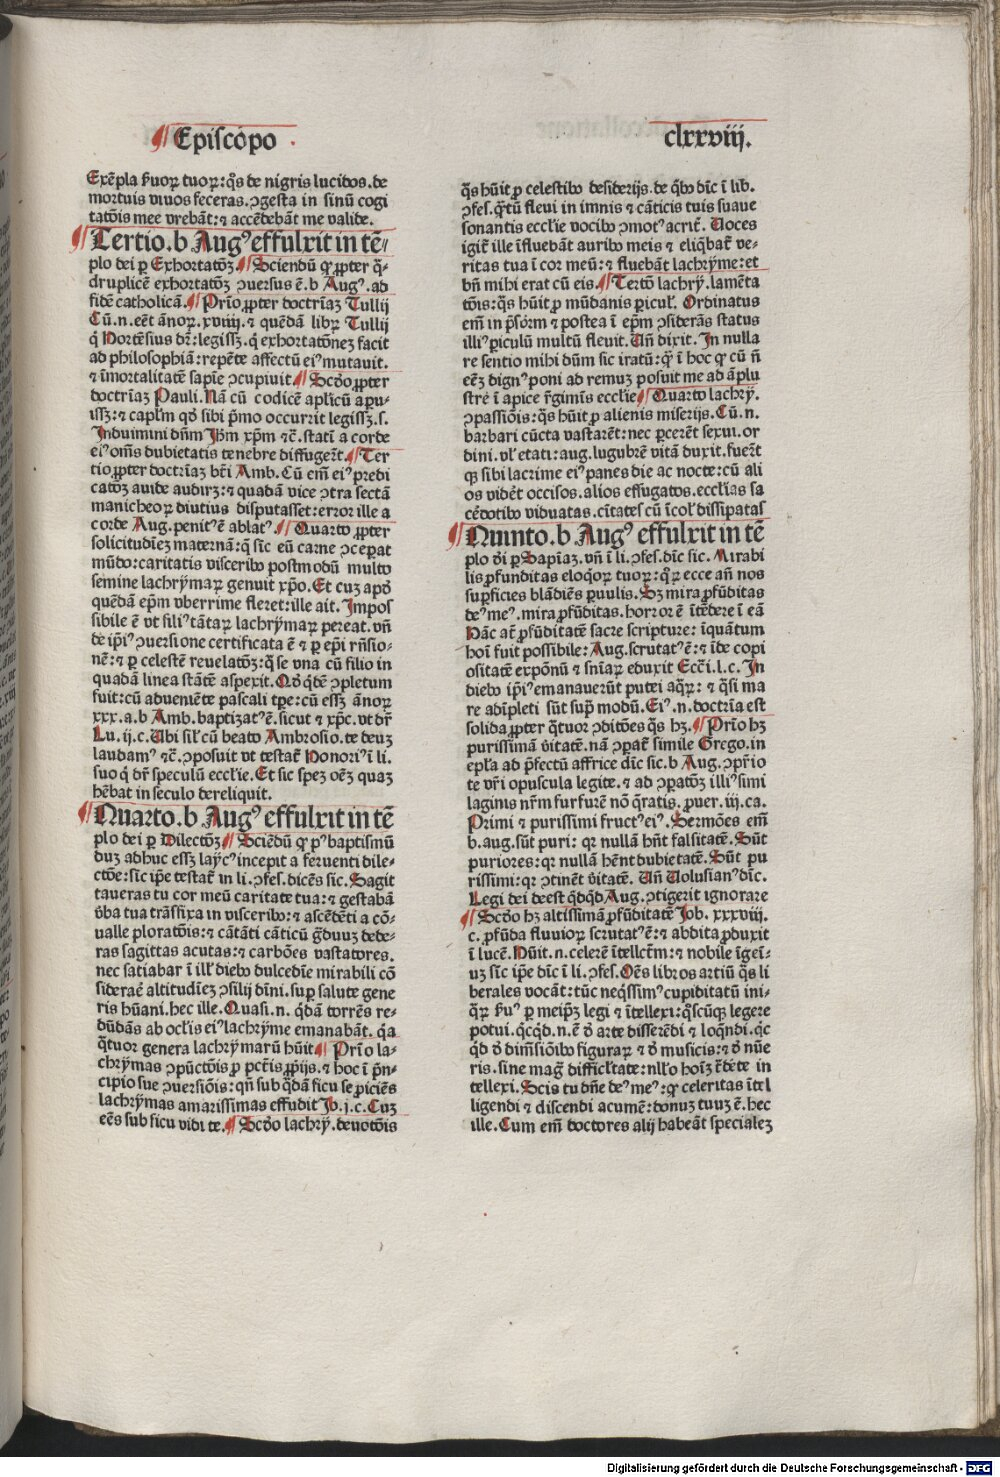 ¶ Episcopo
clxxviij.
Exẽpla ẜuoꝝ tuoꝝ: q̃s de nigris lucidos. de
mortuis viuos feceras. ꝯgesta in sinũ cogi
tatõis mee vrebãt: ⁊ accẽdebãt me valide.
¶ Tertio. b Augꝰ effulxit in tẽ⸗
plo dei ꝑ Exhortatõꝫ ¶ Sciendũ ꝙ ꝓpter q̃⸗
druplicẽ exhortatõꝫ ꝯuersus ẽ. b Augꝰ. ad
fidẽ catholicã. ¶ Prĩo ꝓpter doctrĩaꝫ Tullij
Cũ. n. eẽt ãnoꝝ. xviiij. ⁊ quẽdã libꝝ Tullij
q̇ Hortẽsius dr̃: legissꝫ. q̇ exhortatõnez facit
ad philosophiã: repẽte affectũ eiꝰ mutauit.
⁊ ĩmortalitatẽ sapĩe ꝯcupiuit ¶ Scd̃o ꝓpter
doctrĩaꝫ Pauli. Nã cũ codicẽ aplĩcũ apu⸗
issꝫ: ⁊ caplm̃ qd̃ sibi p̃mo occurrit legissꝫ. s.
Induimini dñm Jhm̃ xp̃m ⁊c̃. statĩ a corde
eiꝰ om̃s dubietatis tenebre diffugert̃. ¶ Ter
tio ꝓpter doctrĩaꝫ btĩ Amb. Cũ em̃ eiꝰ predi
catõꝫ auide audirꝫ: ⁊ quadã vice ꝯtra sectã
manicheoꝝ diutius disputasset: error ille a
corde Aug. penitꝰẽ ablatꝰ. ¶ Quarto ꝓpter
solicitudĩez maternã: q̃ sic̃ eũ carne ꝯceperat
mũdo: caritatis visceribꝰ postmodũ multo
semine lachrỹmaꝝ genuit xp̃o. Et cuz apd̃
quẽdã ep̃m vberrime fleret: ille ait. Impos
sibile ẽ vt filiꝰ tãtaꝝ lachrỹmaꝝ pereat. vñ
de ip̃iꝰ ꝯuersione certificata ẽ ⁊ ꝑ ep̃i rñsio⸗
nẽ: ⁊ ꝑ celestẽ reuelatõꝫ: q̃ se vna cũ filio in
quadã linea stãtẽ aspexit. Qd̃ q̇dẽ ꝯpletum
fuit: cũ adueniẽte pascali tp̃e: cũ essꝫ ãnoꝝ
xxx. a. b Amb. baptizatꝰẽ. sicut ⁊ xp̃c. vt dr̃
Lu. ij. c. Ubi sil̃ cũ beato Ambrosio. te deuz
laudamꝰ ⁊c̃. ꝯposuit vt testat̃ Honoriꝰ ĩ li.
suo q̇ dr̃ speculũ ecclĩe. Et sic spez oẽz quaz
hẽbat in seculo dereliquit.
¶ Quarto. b Augꝰ effulxit in tẽ
plo dei ꝑ Dilectõꝫ ¶ Sciẽdũ ꝙ pꝰ baptismũ
duz adhuc essꝫ laỹcꝰ incepit a feruenti dile⸗
ctõe: sic ip̃e testat̃ in li. ꝯfes. dicẽs sic. Sagit
taueras tu cor meũ caritate tua: ⁊ gestabã
ṽba tua trãsfixa in visceribꝰ: ⁊ ascẽdẽti a cõ⸗
ualle ploratõis: ⁊ cãtãti cãticũ g̃duuz dede⸗
ras sagittas acutas: ⁊ carbões vastatores.
nec satiabar ĩ ill̃ diebꝰ dulcedĩe mirabili cõ
siderae altitudĩez ꝯsilij dĩni. suꝑ salute gene
ris hũani. hec ille. Quasi. n. q̃dã torrẽs re⸗
dũdãs ab ocl̃is eiꝰ lachrỹme emanabãt. q̃a
q̃tuor genera lachrỹmarũ hũit ¶ Prĩo la⸗
chrỹmas ꝯpũctõis ꝓ pctĩs ꝓp̃ijs. ⁊ hoc ĩ p̃n⸗
cipio sue ꝯuersiõis: qñ sub q̃dã ficu se ꝓiciẽs
lachrỹmas amarissimas effudit Jb. j. c. Cuz
eẽs sub ficu vidi te. ¶ Scd̃o lachrỹ. deuotõis
q̃s hũit ꝓ celestibꝰ desiderijs. de q̇bꝰ dic̃ ĩ lib.
ꝯfes. q̃tũ fleui in imnis ⁊ cãticis tuis suaue
sonantis ecclĩe vocibꝰ ꝯmotꝰ acrit̃. Uoces
igit̃ ille ĩfluebãt auribꝰ meis ⁊ eliq̃bat̃ ve⸗
ritas tua ĩ cor meũ: ⁊ fluebãt lachrỹme: et
bñ mihi erat cũ eis. ¶ Tertõ lachrỹ. lamẽta
tõis: q̃s hũit ꝓ mũdanis ꝑicul̃. Ordinatus
em̃ in p̃sb̃rm̃ ⁊ postea ĩ ep̃m ꝯsiderãs status
illiꝰ ꝑiculũ multũ fleuit. Uñ dixit. In nulla
re sentio mihi dũm sic iratũ: q̃ ĩ hoc ꝙ cũ ñ
eẽz dignꝰ poni ad remuꝫ posuit me ad ãplu
stre ĩ apice r̃gimĩs ecclĩe ¶ Quarto lachrỹ.
ꝯpassiõis: q̃s hũit ꝓ alienis miserijs. Cũ. n.
barbari cũcta vastarẽt: nec ꝑcerẽt sexui. or
dini. vl̃ etati: aug. lugubrẽ vitã duxit. fuer̃t
qꝫ sibi lacrime eiꝰ panes die ac nocte: cũ ali
os vidẽt occisos. alios effugatos. ecclĩas sa
cẽdotibꝰ viduatas. cĩtates cũ ĩcol̃ dissipatas
¶ Quinto. b Augꝰ effulxit in tẽ
plo d̃i ꝑ Sapĩaz. vñ ĩ li. ꝯfes. dic̃ sic. Mirabi
lis ꝓfunditas eloq̃oꝝ tuoꝝ: q̃ꝝ ecce añ nos
suꝑficies blãdiẽs ꝑuulis. Sꝫ mira ꝓfũditas
deꝰmeꝰ. mira ꝓfũditas. horror ẽ ĩtẽdere ĩ eã
Hãc at̃ ꝓfũditatẽ sacre scripture: ĩquãtum
hoĩ fuit possibile: Aug. scrutatꝰẽ: ⁊ ĩde copi
ositatẽ expõnũ ⁊ snĩaꝝ eduxit Eccĩ. l. c. In
diebꝰ ip̃iꝰ emanauerũt putei aq̃ꝝ: ⁊ q̃si ma
re adĩpleti sũt sup̃ modũ. Eiꝰ. n. doctrĩa est
solida ꝓpter q̃tuor ꝯditões q̃s hꝫ. ¶ Prĩo hꝫ
purissimã ṽitatẽ. nã ꝯparat̃ simile Grego. in
epl̃a ad p̃fectũ affrice dic̃ sic. b Aug. ꝯpr̃io
te vr̃i opuscula legite. ⁊ ad ꝯꝑatõꝫ illiꝰ simi
laginis nr̃m furfurẽ nõ q̃ratis. ꝓuer. iij. ca.
Primi ⁊ purissimi fructꝰ eiꝰ. Sermões em̃
b. aug. sũt puri: qꝛ nullã hñt falsitatẽ. Sũt
puriores: qꝛ nullã hẽnt dubietatẽ. Sũt pu
rissimi: qꝛ ꝯtinẽt ṽitatẽ. Uñ Uolusianꝰ dic̃.
Legi dei deest q̇dq̇d Aug. ꝯtigerit ignorare
¶ Scd̃o hꝫ altissimã ꝓfũditatẽ Job. xxxviij.
c. ꝓfũda fluuioꝝ scrutatꝰẽ: ⁊ abdita ꝓduxit
ĩ lucẽ. Hũit. n. celerẽ ĩtellctm̃: ⁊ nobile ĩgeĩ⸗
uz sic ip̃e dic̃ ĩ li. ꝯfes. Oẽs libros artiũ q̃s li
berales vocãt: tũc neq̃ssimꝰ cupiditatũ ini⸗
q̃ꝝ ẜuꝰ ꝑ meip̃ꝫ legi ⁊ ĩtellexi: q̃scũqꝫ legere
potui. q̇cq̇d. n. ẽ d̃ arte disserẽdi ⁊ loq̃ndi. q̇c
q̇d d̃ dim̃siõibꝰ figuraꝝ ⁊ d̃ musicis: ⁊ d̃ nũe
ris. sine mag̃ difficl̃tate: nll̃o hoĩꝫ t̃dẽte in
tellexi. Scis tu dñe deꝰmeꝰ: ꝙ celeritas ĩtel
ligendi ⁊ discendi acumẽ: donuz tuuz ẽ. hec
ille. Cum em̃ doctores alij habeãt specialeꝫ
Digitalisierung gefördert durch die Deutsche Forschungsgemeinschaft - DFG